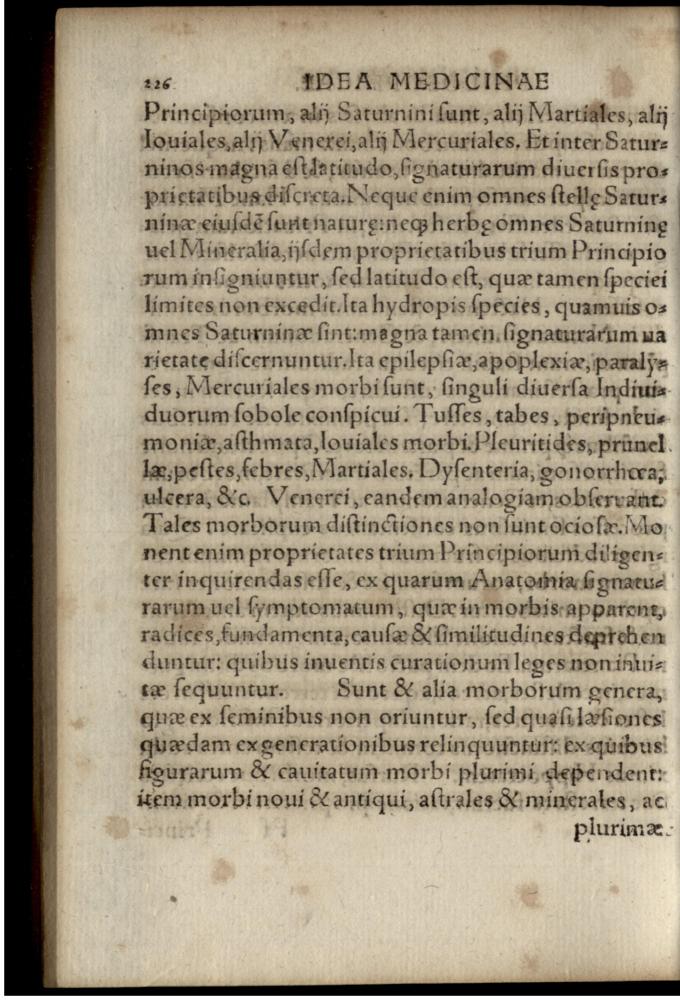 226 IDEA MEDICINAE
Principiorum, alij Saturnini sunt, alij Martiales, alij
Iouiales, alij Venerei, alij Mercuriales. Et inter Satur⸗
ninos magna est latitudo, signaturarum diuersis pro⸗
prietatibus discreta. Neque enim omnes stellę Satur⸗
ninæ eiusdē sunt naturę: neq; herbę omnes Saturninę
uel Mineralia, ijsdem proprietatibus trium Principio
rum insigniuntur, sed latitudo est, quæ tamen speciei
limites non excedit. Ita hydropis species, quamuis o⸗
mnes Saturninæ sint: magna tamen signaturarum ua
rietate discernuntur. Ita epilepsiæ, apoplexiæ, paraly⸗
ses, Mercuriales morbi sunt, singuli diuersa Indiui⸗
duorum sobole conspicui. Tusses, tabes, peripneu⸗
moniæ, asthmata, Iouiales morbi. Pleuritides, prunel
læ, pestes, febres, Martiales. Dysenteria, gonorrhœa,
ulcera, &c. Venerei, eandem analogiam obseruant.
Tales morborum distinctiones non sunt ociosæ. Mo
nent enim proprietates trium Principiorum diligen⸗
ter inquirendas esse, ex quarum Anatomia signatu⸗
rarum uel symptomatum, quæ in morbis apparent,
radices, fundamenta, causæ & similitudines deprehen
duntur: quibus inuentis curationum leges non inui⸗
tæ sequuntur. Sunt & alia morborum genera,
quæ ex seminibus non oriuntur, sed quasi læsiones
quædam ex generationibus relinquuntur: ex quibus
figurarum & cauitatum morbi plurimi dependent:
item morbi noui & antiqui, astrales & minerales, ac
plurimæ